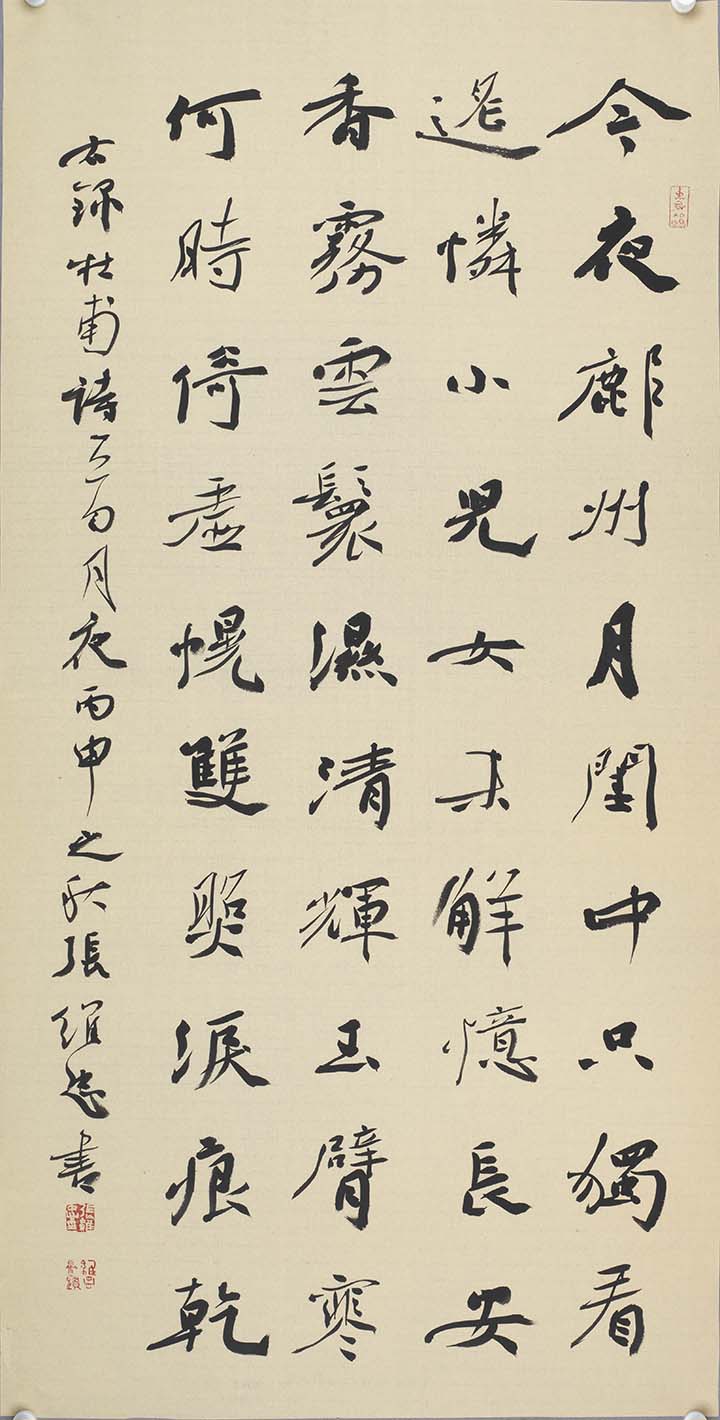 今夜鄜州月閨中只獨看
遥憐小兒女未解憶長安
香霧雲鬟濕清輝玉臂寒
何時倚虛幌雙照淚痕乾
右錄杜甫詩一首月夜丙申之秋張維忠書
張維忠